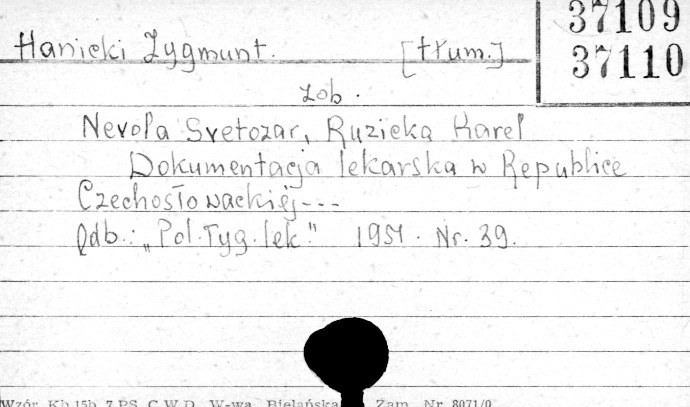 37109
Hanicki Zygmunt. [tłum.]
37110
zob.
Nevola Svetozar, Ruzicka Karel
Dokumentacja lekarska w Republice
Czechosłowackiej---
Odb.: „Pol. Tyg. lek." 1951. Nr. 39.
Wzór Kb 15b 7 PS C.W.D. W-wa, Bielańska Zam. Nr 8071/0